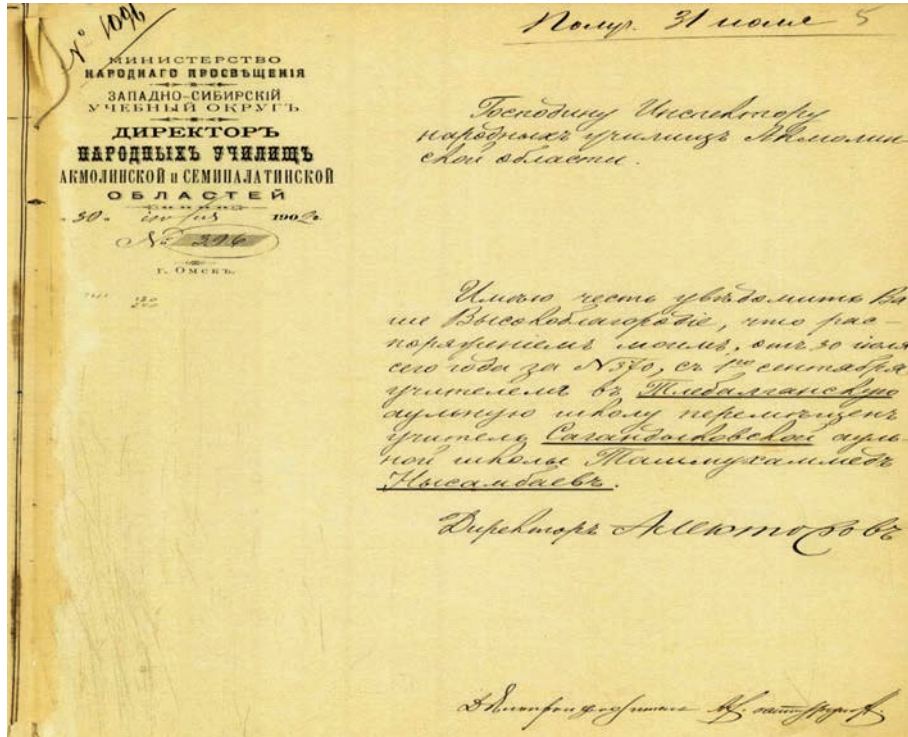 № 1096
Получ. 31 июля 5
МИНИСТЕРСТВО
НАРОДНАГО ПРОСВѢЩЕНІЯ
ЗАПАДНО-СИБИРСКІЙ
УЧЕБНЫЙ ОКРУГЪ
ДИРЕКТОРЪ
НАРОДНЫХЪ УЧИЛИЩЪ
АКМОЛИНСКОЙ и СЕМИПАЛАТИНСКОЙ
ОБЛАСТЕЙ
„30„ іюля 190 г.
№ 396
г. Омскъ.
Господину Инспектору
народныхъ училищъ Акмолин-
ской области.
Имѣю честь увѣдомить Ва
ше Высокоблагородіе, что рас-
поряженіемъ моимъ, отъ 30 іюля
сего года за № 370, съ 1го сентября
учителемъ въ
аульную школу перемѣщенъ
учитель Сагандыковской ауль-
ной школы Ташмухаммедъ
Нысамбаевъ.
Директоръ Алекторовъ
Дѣлопроизводитель